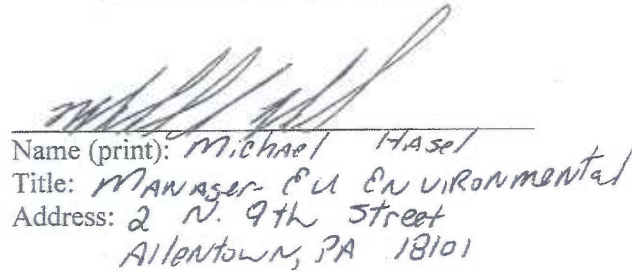 Name (print): Michael Hasel
Title: Manager - EU Environmental
Address: 2 N. 9th Street
Allentown, PA 18101